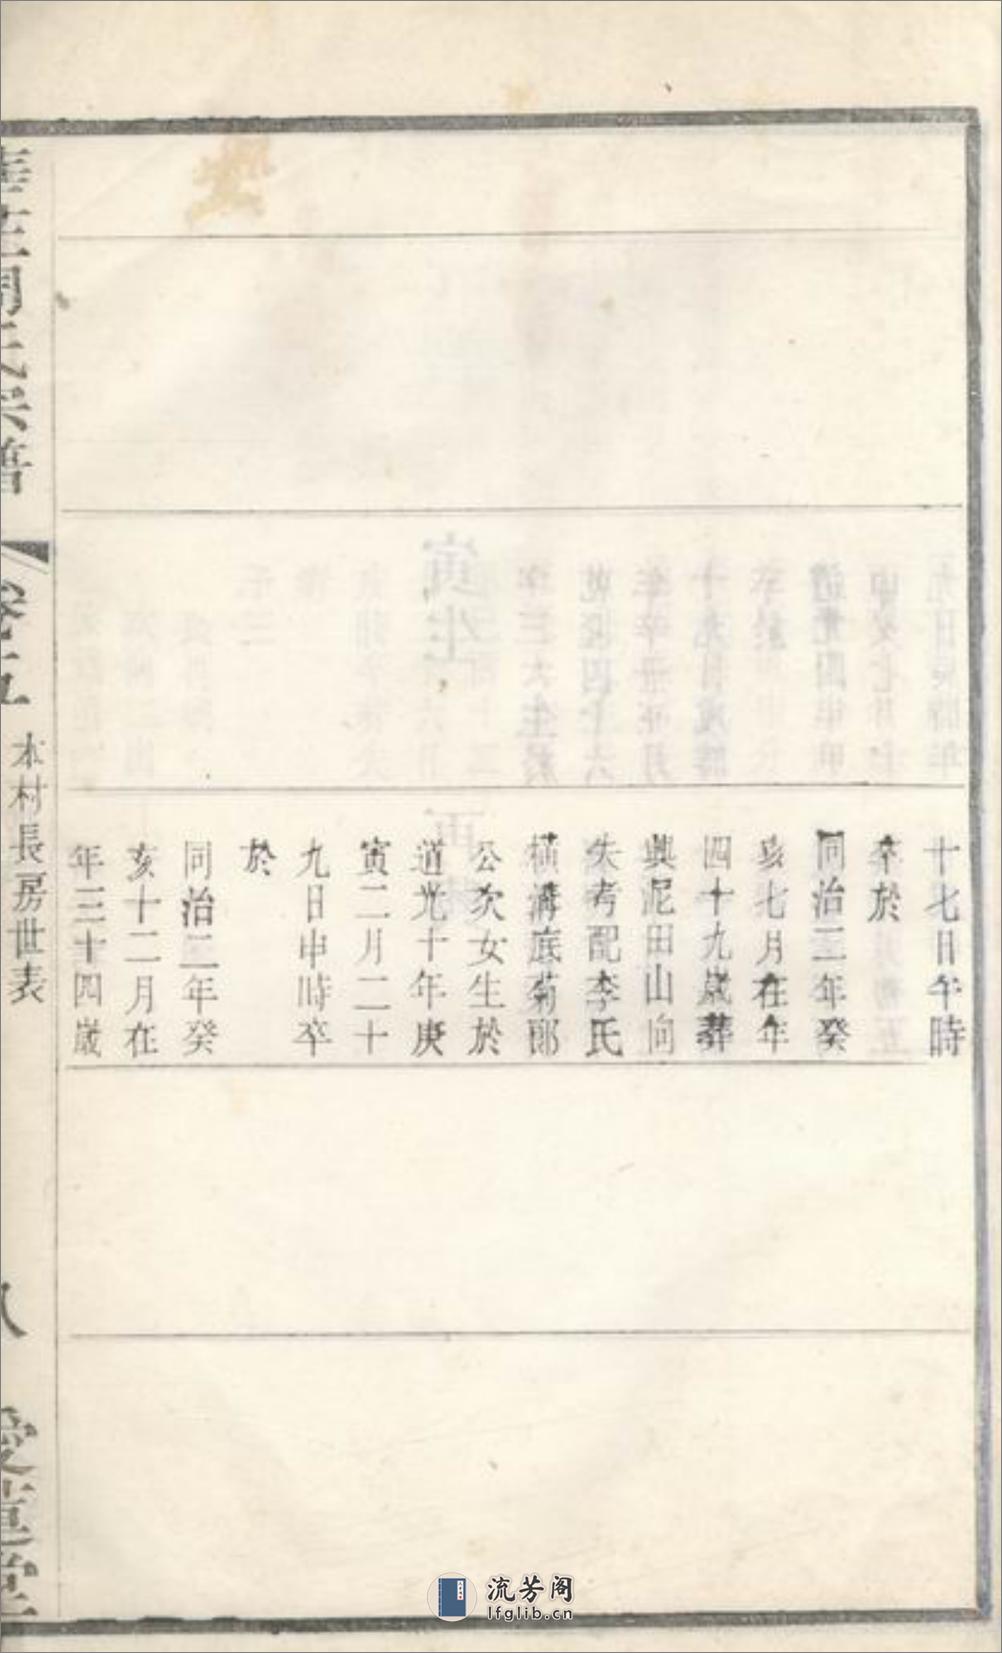 十七日午時
卒於
同治二年癸
亥七月在年
四十九歲葬
與泥田山向
失考配李氏
橫溝底菊郎
公次女生於
道光十年庚
寅二月二十
九日申時卒
於
同治二年癸
亥十二月在
年三十四歲
氏宗譜
卷五
本村長房世表
八
流芳阁
lfglib.cn